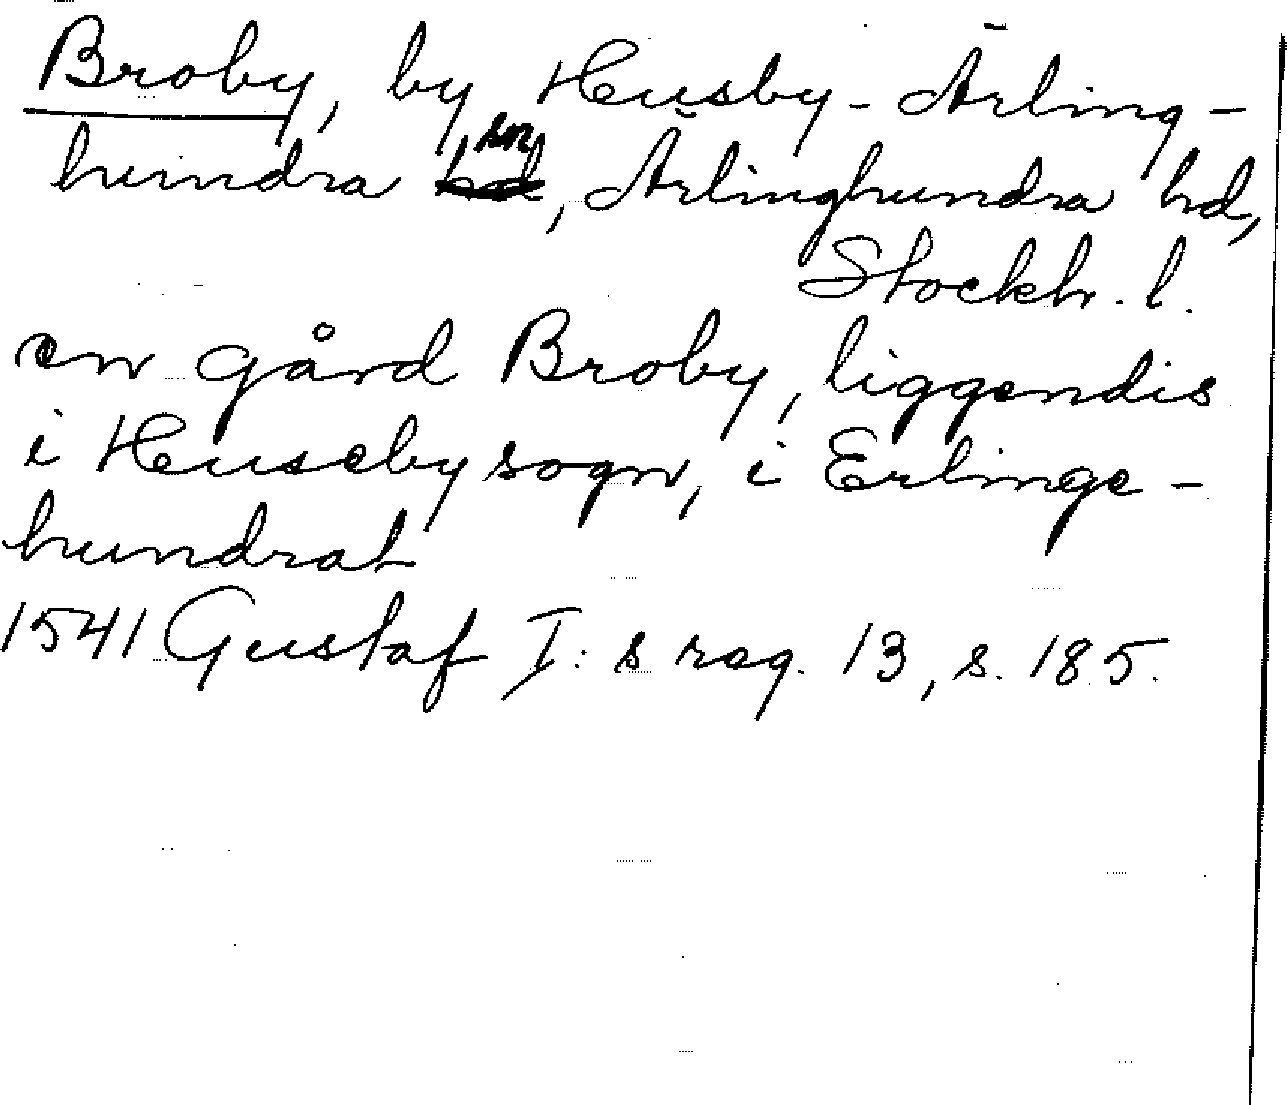 Broby, by Husby-Ärling-
hundra sn, Ärlinghundra hd,
Stockh. l.
en gård Broby, liggendis
i Huseby sogn, i Erlinge-
hundrat
1541 Gustaf I:s reg. 13, s. 185.